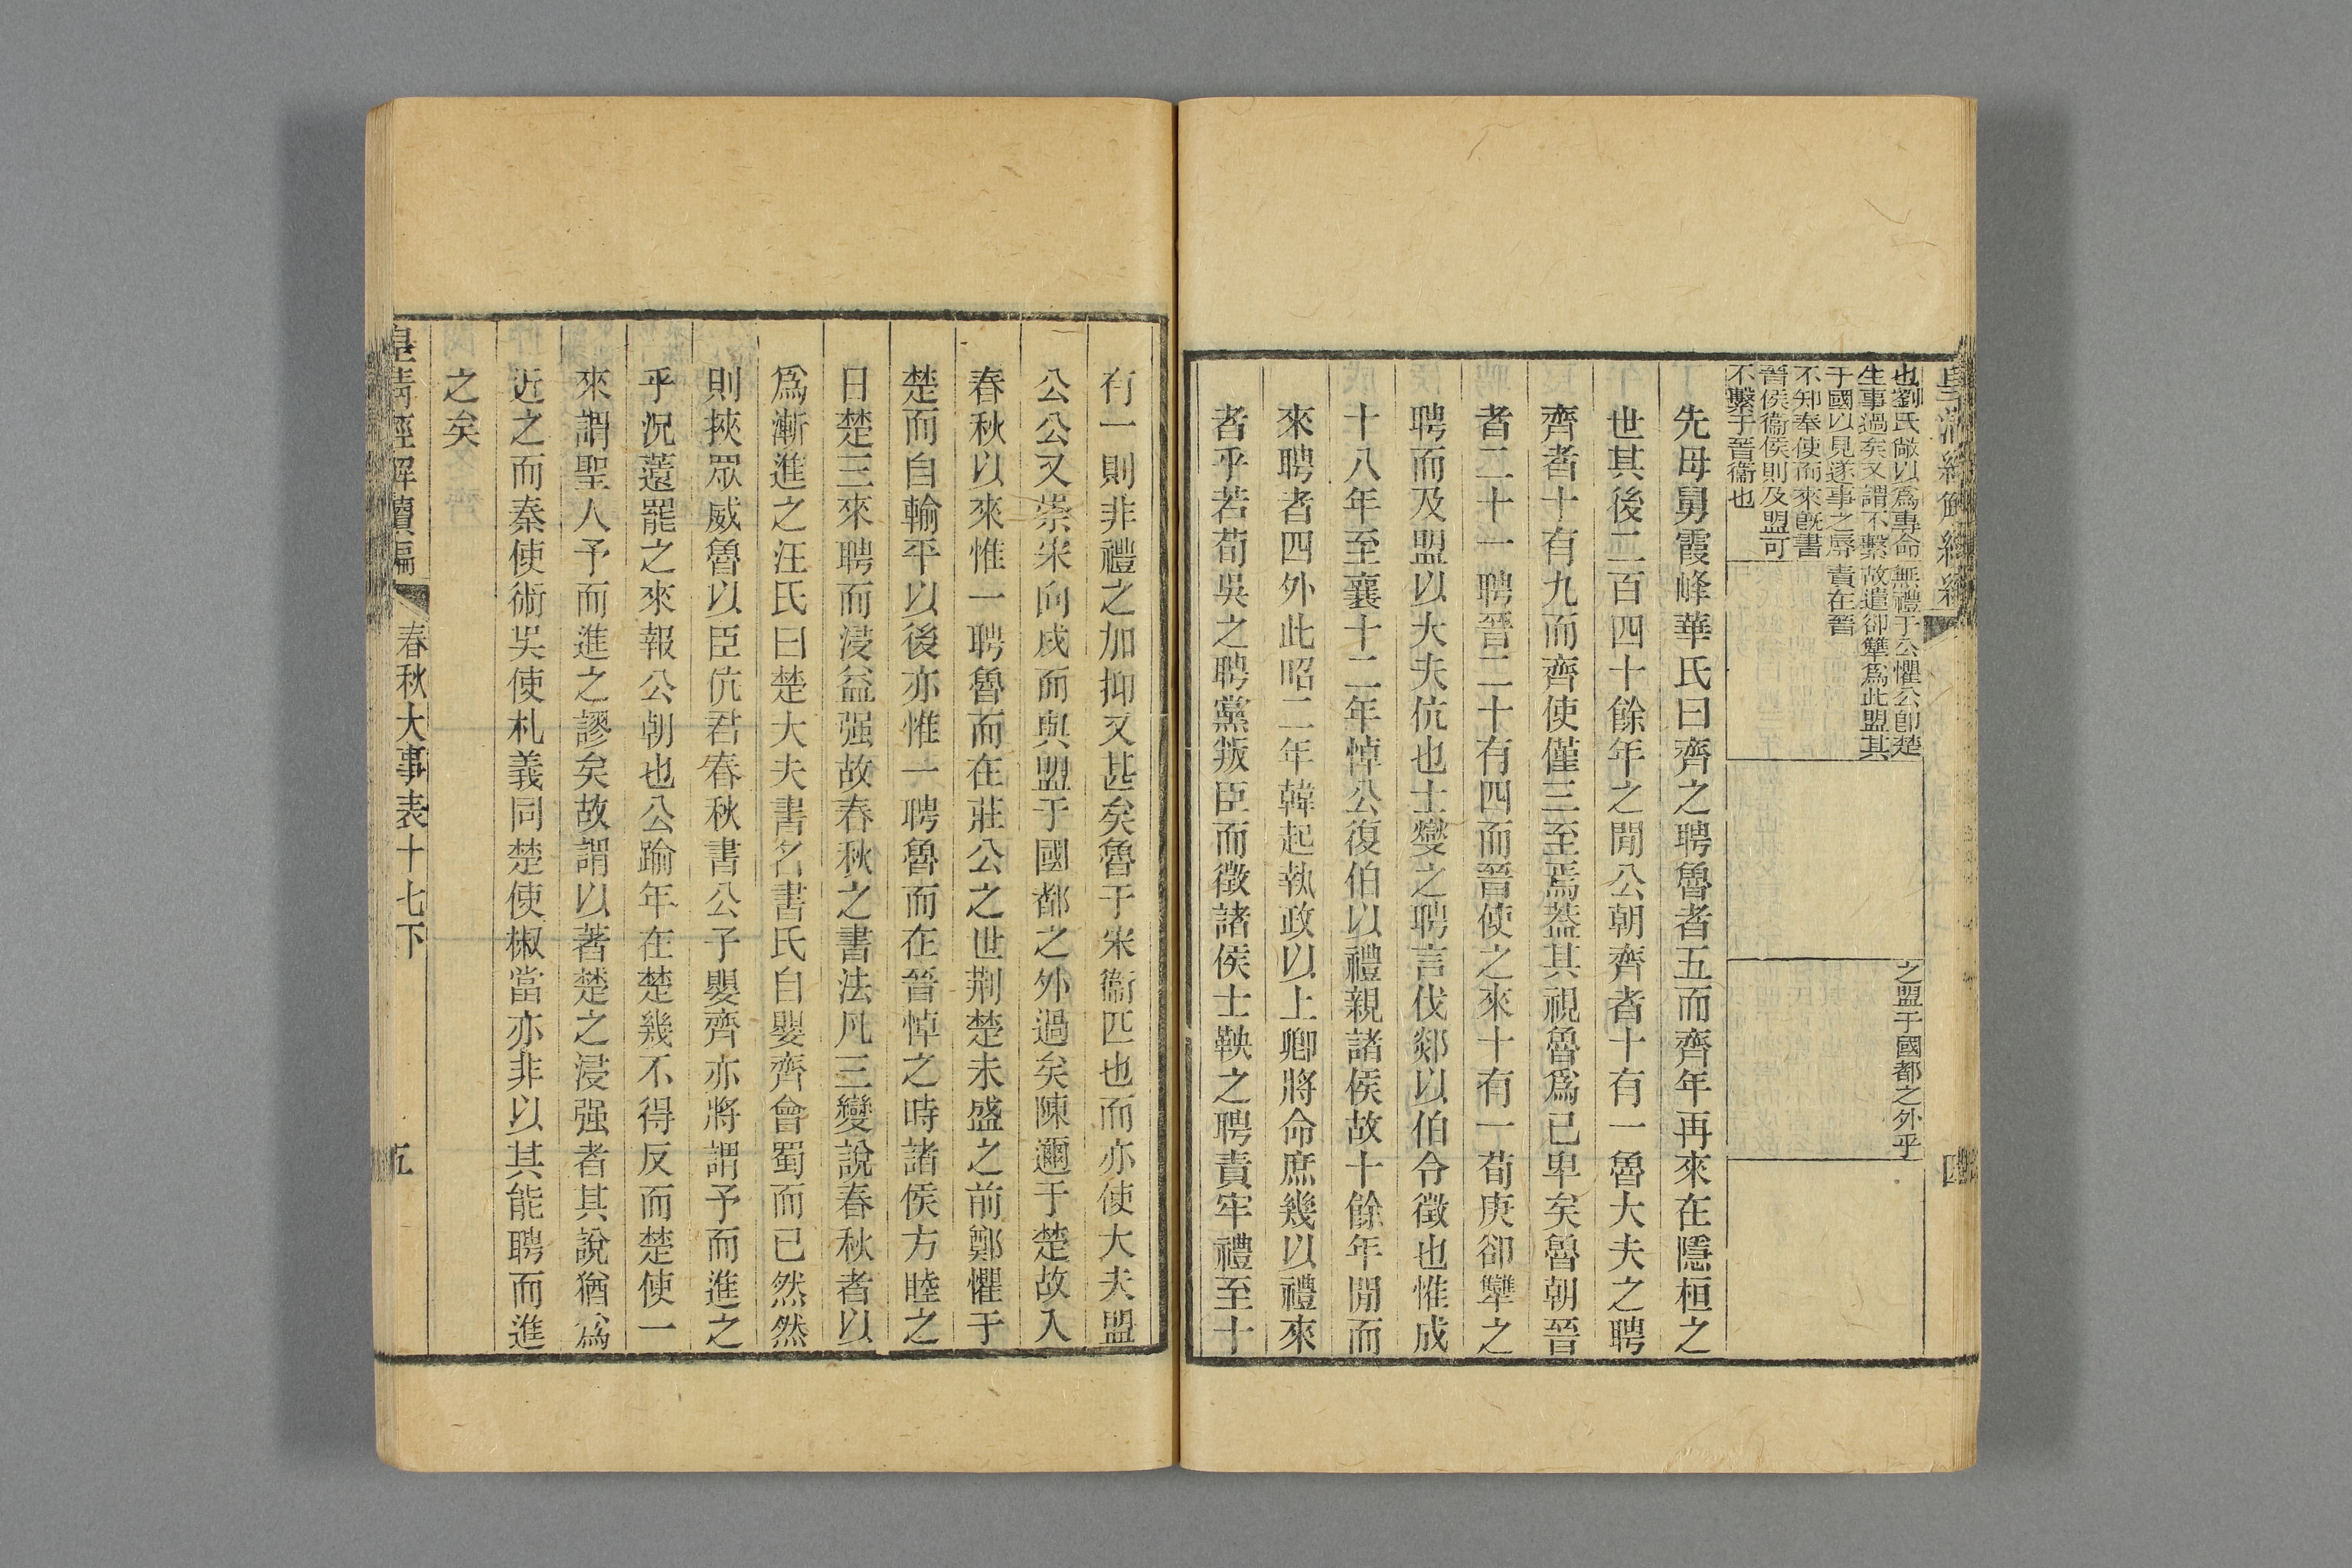 皇清經解續編
四
也劉氏敞以爲專命
生事過矣又謂不繫
于國以見遂事之辱
不知奉使而來旣書
晉侯衞侯則及盟可
不繫于晉衞也
無禮于公懼公卽楚
故遣卻犨爲此盟其
責在晉
之盟于國都之外乎
先母舅霞峰華氏曰齊之聘魯者五而齊年再來在隱桓之
世其後二百四十餘年之閒公朝齊者十有一魯大夫之聘
齊者十有九而齊使僅三至焉葢其視魯爲已卑矣魯朝晉
者二十一聘晉二十有四而晉使之來十有一荀庚卻犨之
聘而及盟以大夫伉也士燮之聘言伐郯以伯令徵也惟成
十八年至襄十二年悼公復伯以禮親諸侯故十餘年閒而
來聘者四外此昭二年韓起執政以上卿將命庶幾以禮來
者乎若荀吳之聘黨叛臣而徵諸侯士鞅之聘責牢禮至十
有一則非禮之加抑又甚矣魯于宋衞匹也而亦使大夫盟
公公又崇宋向戌而與盟于國都之外過矣陳邇于楚故入
春秋以來惟一聘魯而在莊公之世荆楚未盛之前鄭懼于
楚而自輸平以後亦惟一聘魯而在晉悼之時諸侯方睦之
日楚三來聘而浸益强故春秋之書法凡三變說春秋者以
爲漸進之汪氏曰楚大夫書名書氏自嬰齊會蜀而已然然
則挾眾威魯以臣伉君春秋書公子嬰齊亦將謂予而進之
乎況薳罷之來報公朝也公踰年在楚幾不得反而楚使一
來謂聖人予而進之謬矣故謂以著楚之浸强者其說猶爲
近之而秦使術吳使札義同楚使椒當亦非以其能聘而進
之矣
皇清經解續編
春秋大事表十七下
五